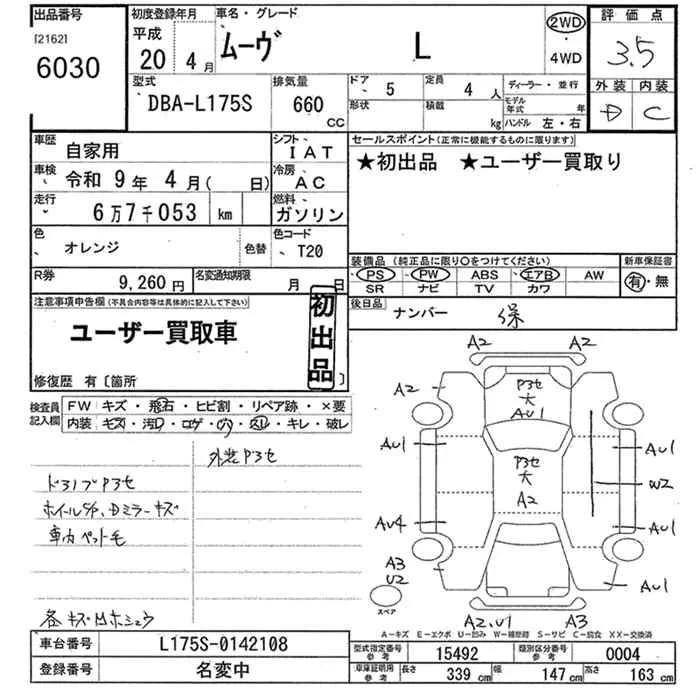 出品番号
[2162]
6030
初度登録年月
平成
20年 4月
車名・グレード
ムーヴ L
2WD
・
4WD
評価点
3.5
外装 内装
D C
型式
DBA-L175S
排気量
660
CC
ドア 5
定員 4 人
形状 積載 kg
ディーラー・並行
モデル年式 年
ハンドル 左・右
車歴 自家用
シフト IAT
車検 令和 9年 4月( 日)
冷房 AC
走行 6万7千053 km
燃料 ガソリン
色 オレンジ 色替
色コード T20
R券 9,260円
名変通知期限 月 日
セールスポイント(正常に機能するものに限ります)
★初出品 ★ユーザー買取り
装備品(純正品に限り○をつけてください)
PS PW ABS エアB AW
SR ナビ TV カワ
新車保証書
有・無
後日品
ナンバー 保
注意事項申告欄(不具合内容等は具体的に記入して下さい)
ユーザー買取車
初出品
修復歴 有〔箇所 〕
検査員記入欄
FW キズ・飛石・ヒビ割・リペア跡・×要
内装 キズ・汚れ・コゲ・穴・スレ・キレ・破レ
外装Pヨセ
ドアノブPヨセ
ホイルS/P、Dミラーキズ
車内ペット毛
各キズ凹ホシュウ
A2 A2
A2
Pヨセ
大
AU1
AU1 AU1
Pヨセ
大
A2
W2
AU4 AU1
A3
U2
AU1
スペア
A2,U1 A3
A-キズ E-エクボ U-凹み W-補修跡 S-サビ C-腐食 XX-交換済
車台番号 L175S-0142108
登録番号 名変中
型式指定番号 参考 15492
類別区分番号 参考 0004
車庫証明用 参考 長さ 339 cm 幅 147 cm 高さ 163 cm